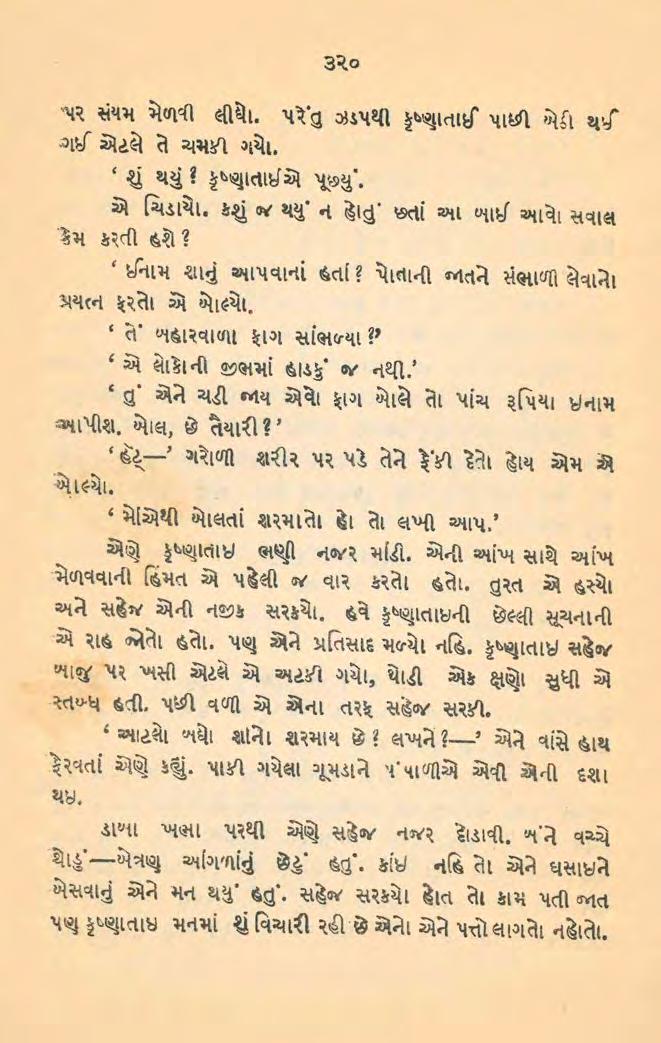 ૩૨૦
પર સંયમ મેળવી લીધો. પરંતુ ઝડપથી કૃષ્ણાતાઈ પાછી બેઠી થઈ
ગઈ એટલે તે ચમકી ગયો.
‘ શું થયું ? કૃષ્ણાતાઈએ પૂછ્યું.
એ ચિડાયો. કશું જ થયું ન હોતું છતાં આ બાઈ આવો સવાલ
કેમ કરતી હશે ?
‘ ઈનામ શાનું આપવાનાં હતાં ? પોતાની જાતને સંભાળી લેવાનો
પ્રયત્ન કરતો એ બોલ્યો.
‘ તેં બહારવાળા ફાગ સાંભળ્યા ?’
‘ એ લોકોની જીભમાં હાડકું જ નથી.’
‘ તું એને ચડી જાય એવો ફાગ બોલે તો પાંચ રૂપિયા ઇનામ
આપીશ. બોલ, છે તૈયારી ? ’
‘ હૅટ્—’ ગરોળી શરીર પર પડે તેને ફેંકી દેતો હોય એમ એ
બોલ્યો.
‘ મોંએથી બોલતાં શરમાતો હો તો લખી આપ.’
એણે કૃષ્ણાતાઇ ભણી નજર માંડી. એની આંખ સાથે આંખ
મેળવવાની હિંમત એ પહેલી જ વાર કરતો હતો. તુરત એ હસ્યો
અને સહેજ એની નજીક સરક્યો. હવે કૃષ્ણાતાઇની છેલ્લી સૂચનાની
એ રાહ જોતો હતો. પણ એને પ્રતિસાદ મળ્યો નહિ. કૃષ્ણાતાઇ સહેજ
બાજુ પર ખસી એટલે એ અટકી ગયો, થોડી એક ક્ષણો સુધી એ
સ્તબ્ધ હતી. પછી વળી એ એના તરફ સહેજ સરકી.
‘ આટલો બધો શાંનો શરમાય છે ? લખને ?—’ એને વાંસે હાથ
ફેરવતાં એણે કહ્યું. પાકી ગયેલા ગૂમડાને પંપાળીએ એવી એની દશા
થઇ.
ડાબા ખભા પરથી એણે સહેજ નજર દોડાવી. બંને વચ્ચે
થોડું—બેત્રણ આંગળાંનું છેટું હતું. કાંઇ નહિ તો એને ઘસાઇને
બેસવાનું એને મન થયું હતું. સહેજ સરક્યો હોત તો કામ પતી જાત
પણ કૃષ્ણાતાઇ મનમાં શું વિચારી રહી છે એનો એને પત્તો લાગતો નહોતો.